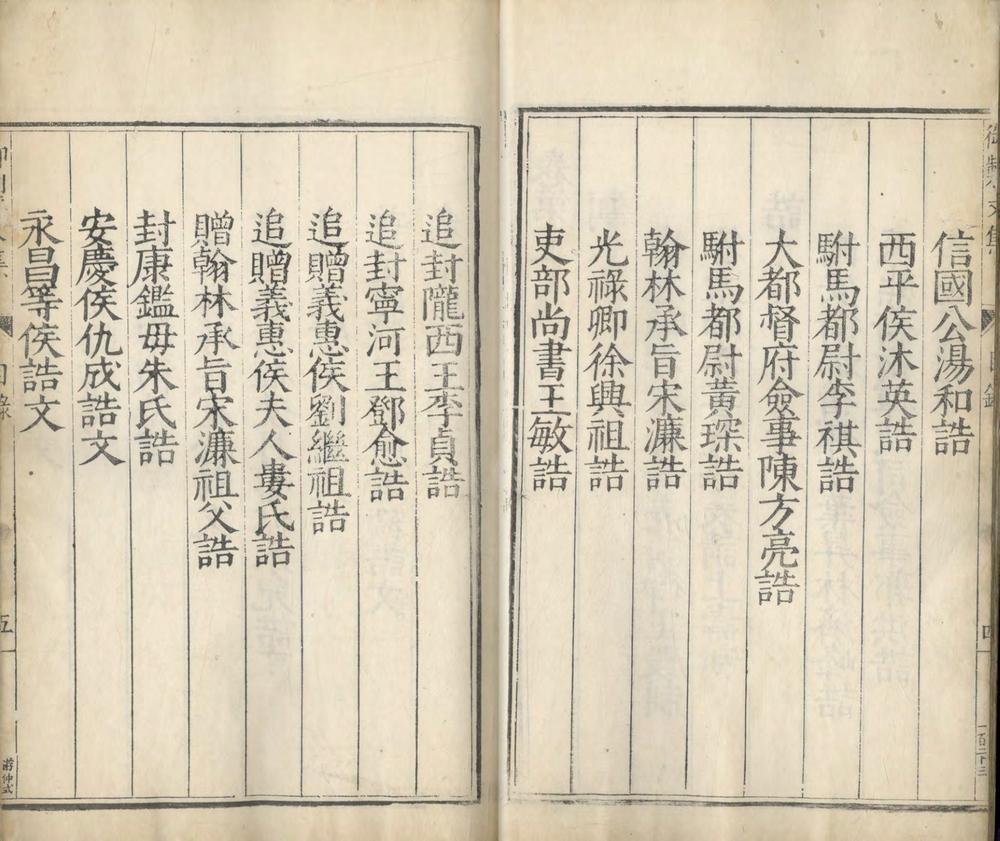 信國公湯和誥
西平侯沐英誥
駙馬都尉李祺誥
大都督府僉事陳方亮誥
駙馬都尉黃琛誥
翰林承旨宋濂誥
光祿卿徐興祖誥
吏部尚書王敏誥
追封隴西王李貞誥
追封寧河王鄧愈誥
追贈義惠侯劉繼祖誥
追贈義惠侯夫人婁氏誥
贈翰林承旨宋濂祖父誥
封康鑑母朱氏誥
安慶侯仇成誥文
永昌等侯誥文
目錄
五